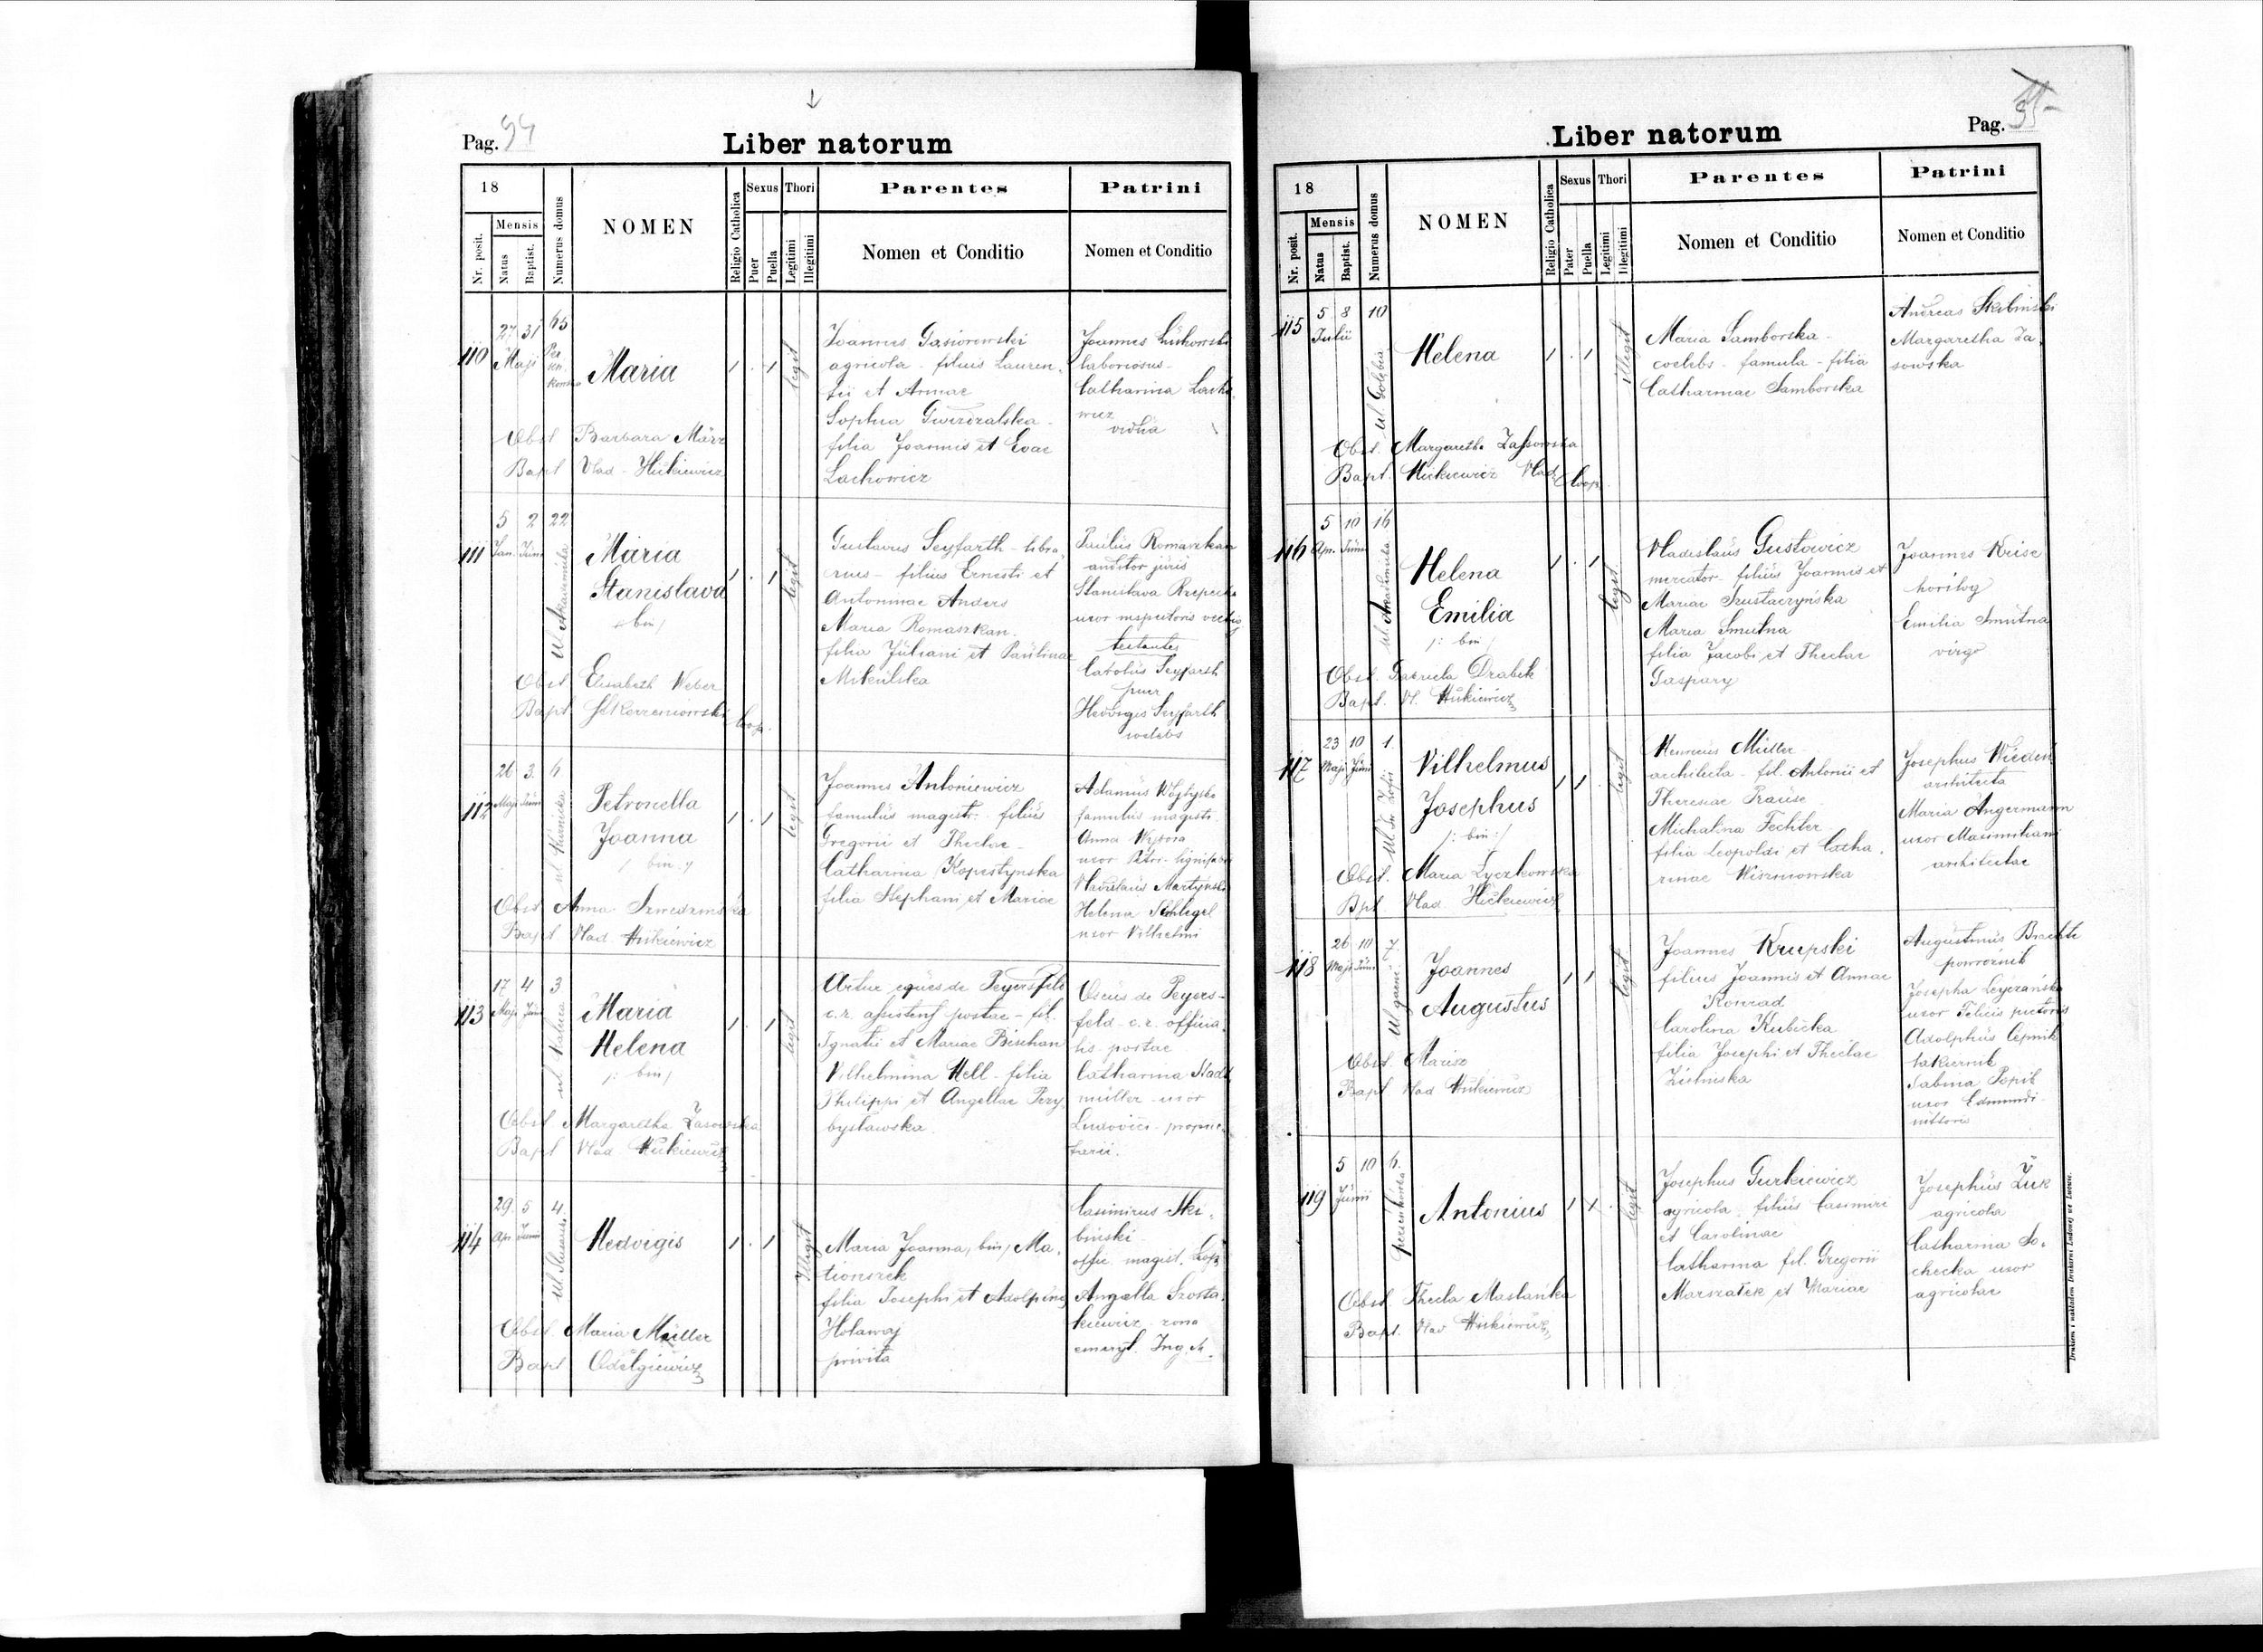 Pag. 94
Liber natorum
18
Nr. posit.
Mensis
Natus
Baptist.
Numerus domus
NOMEN
Religio Catholica
Sexus
Puer
Puella
Thori
Legitimi
Illegitimi
Parentes
Nomen et Conditio
Patrini
Nomen et Conditio
110
27 31
Maji
65
Maria
legit
Obst Barbara März
Bapt Vlad Hickiewicz
Joannes Gasiorowski
agricola - filius Lauren-
tii et Annae
Sophia
filia Joannis et Evae
Lachowicz
Joannes
laboriosus
Catharina
vidua
111
5 2 22
Jan. Juni
ul Akademicka
Maria
Stanislava
bin
legit
Obst Elisabeth Weber
Bapt Coop.
Gustavus Seyfarth - libra-
rius - filius Ernesti et
Antoninae Anders
Maria Romaszkan
filia Juliani et Paulinae
Mikulska
Paulus Romaszkan
auditor juris
Stanislava Rzepecka
uxor inspectoris
testantes
Carolus Seyfarth
puer
Hedviges Seyfarth
coelebs
112
26 3. 6
Maji Juni
Petronella
Joanna
/: bin :/
legit
Obst Anna
Bapt Vlad Hickiewicz
Joannes Antoniewicz
famulus magistr. filius
Gregorii et Theclae
Catharina Kopestynska
filia Stephani et Mariae
Adamus
famulus magistr.
Anna
uxor
Vladislaus Martynski
Helena Schlegel
uxor Vilhelmi
113
17 4 3
Maji Juni
ul Kalecza
Maria
Helena
/: bin /
legit
Obst Margaretha Zasowska
Bapt Vlad Hickiewicz
Artur eques de Peyersfeld
c.r. assistens postae - fil.
Ignatii et Mariae Bischan
Vilhelmina Hell - filia
Philippi et Angellae Przy-
byslawska
de Peyers-
feld - c.r. officia-
lis postae
Catharina Stadt
müller - uxor
Ludovici proprie-
tarii.
114
29. 5 4.
Apr. Junii
Hedvigis
Illegit
Obst Maria Müller
Bapt Odelgiewicz
Maria Joanna, bin, Ma-
tionszek
filia Josephi et
privata
Casimirus Ski-
binski
offic. magist.
Angella Szosta-
kiewicz - zona
emeryt. Ing.
Liber natorum
Pag. 95
18
Nr. posit.
Mensis
Natus
Baptist.
Numerus domus
NOMEN
Religio Catholica
Sexus
Pater
Puella
Thori
Legitimi
Illegitimi
Parentes
Nomen et Conditio
Patrini
Nomen et Conditio
115
5 8 10
Julii
ul Golębia
Helena
illegit
Obst. Margaretha Zassowska
Bapt. Hickiewicz Vlad Coop.
Maria Samborska
coelebs - famula - filia
Catharinae Samborska
Andreas Skibinski
Margaretha Za-
sowska
116
5 10 16
Apr. Junii
ul Akademicka
Helena
Emilia
/: bin /
legit
Obst. Gabriela Drabik
Bapt. Vl. Hickiewicz
Vladislaus Gustowicz
mercator - filius Joannis et
Mariae
Maria Smutna
filia Jacobi et Theclae
Gaspary
Joannes Krise
horilog
Emilia Smutna
virgo
117
23 10 1.
Maji Juni
Vilhelmus
Josephus
/: bin :/
legit
Obst. Maria Lyczkowska
Bpt Vlad Hickiewicz
Henricus Müller
architecta - fil. Antonii et
Theresiae Prause
Michalina Fechter
filia Leopoldi et Catha-
rinae Wiszniowska
Josephus
architecta
Maria Angermann
uxor Maximiliani
architectae
118
26 10 7
Maji Juni
Joannes
Augustus
legit
Obst.
Bapt Vlad Hickiewicz
Joannes Krupski
filius Joannis et Annae
Konrad
Carolina Kubicka
filia Josephi et Theclae
Zielinska
Augustinus
powroznik
Josepha
uxor Felicis pictoris
Adolphus Cepnik
lakiernik
Sabina Popil
uxor Edmundi
119
5 10 6.
Junii
Antonius
legit
Obst Thecla Maslanka
Bapt. Vlad Hickiewicz
Josephus Gurkiewicz
agricola filius Casimiri
et Carolinae
Catharina fil. Gregorii
Marszałek et Mariae
Josephus Żuk
agricola
Catharina So-
checka uxor
agricolae
Drukiem i nakładem Drukarni Ludowej we Lwowie.